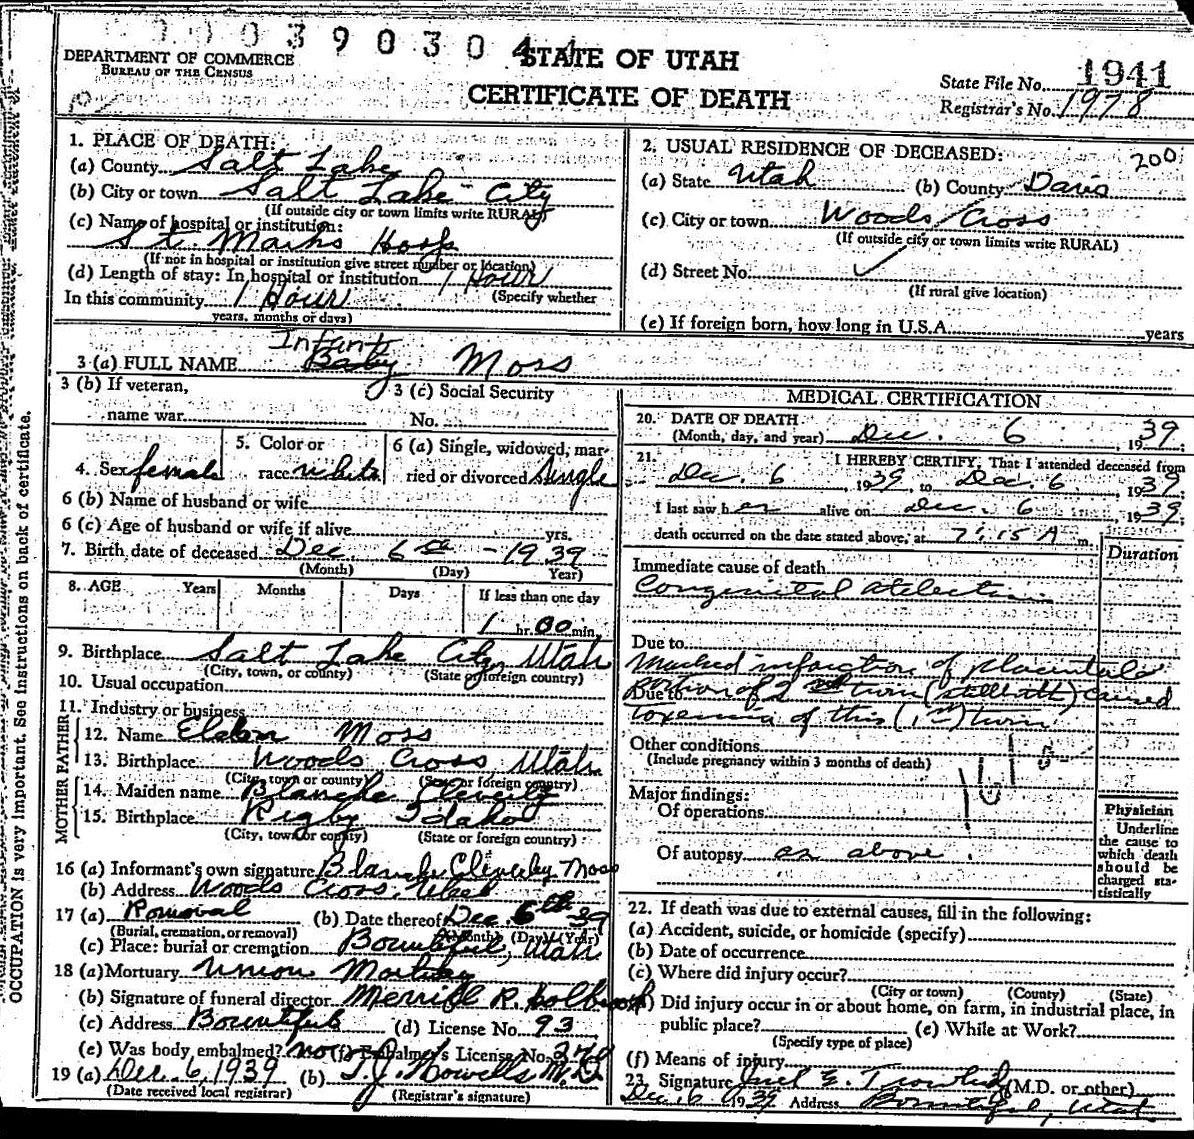 0 0 0 3 9 0 3 0 4 1
DEPARTMENT OF COMMERCE
BUREAU OF THE CENSUS
STATE OF UTAH
CERTIFICATE OF DEATH
State File No. 1941
Registrar's No. 1978
200
1. PLACE OF DEATH:
(a) County Salt Lake
(b) City or town Salt Lake City
(If outside city or town limits write RURAL)
(c) Name of hospital or institution:
St. Marks Hosp
(If not in hospital or institution give street number or location)
(d) Length of stay: In hospital or institution 1 Hour
In this community 1 Hour (Specify whether
years, months or days)
2. USUAL RESIDENCE OF DECEASED:
(a) State Utah (b) County Davis
(c) City or town Woods Cross
(If outside city or town limits write RURAL)
(d) Street No. ✓
(If rural give location)
(e) If foreign born, how long in U.S.A. years
Infant
3 (a) FULL NAME Baby Moss
3 (b) If veteran,
name war
3 (c) Social Security
No.
4. Sex female
5. Color or
race white
6 (a) Single, widowed, mar-
ried or divorced Single
6 (b) Name of husband or wife
6 (c) Age of husband or wife if alive yrs.
7. Birth date of deceased Dec 6 - 1939
(Month) (Day) Year)
8. AGE Years Months Days If less than one day
1 hr. 00 min.
9. Birthplace Salt Lake City, Utah
(City, town, or county) (State or foreign country)
10. Usual occupation
11. Industry or business
FATHER
12. Name Eldon Moss
13. Birthplace Woods Cross Utah
(City, town or county) (State or foreign country)
MOTHER
14. Maiden name Blanche Cleverly
15. Birthplace Rigby Idaho
(City, town or county) (State or foreign country)
16 (a) Informant's own signature Blanche Cleverley Moss
(b) Address Woods Cross, Utah
17 (a) Removal (b) Date thereof Dec. 6th 39
(Burial, cremation, or removal) (Month) (Day) (Year)
(c) Place: burial or cremation Bountiful, Utah
18 (a) Mortuary Union Mortuary
(b) Signature of funeral director Merrill R. Holbrook
(c) Address Bountiful (d) License No. 93
(e) Was body embalmed? no (f) Embalmer's License No.
19 (a) Dec. 6, 1939 (b) T.J. Howells M.D.
(Date received local registrar) (Registrar's signature)
MEDICAL CERTIFICATION
20. DATE OF DEATH
(Month, day, and year) Dec. 6 1939
21. I HEREBY CERTIFY, That I attended deceased from
Dec. 6, 1939, to Dec. 6, 1939.
I last saw her alive on Dec. 6, 1939
death occurred on the date stated above, at 7:15 A m.
Duration
Immediate cause of death
Congenital atelectasis
Due to
Marked infarction of placental
Due to portion of 2nd twin (stillbirth) caused
toxemia of this (1st) twin
Other conditions
(Include pregnancy within 3 months of death)
Major findings:
Of operations
Of autopsy as above.
Physician
Underline
the cause to
which death
should be
charged sta-
tistically
22. If death was due to external causes, fill in the following:
(a) Accident, suicide, or homicide (specify)
(b) Date of occurrence
(c) Where did injury occur?
(City or town) (County) (State)
(d) Did injury occur in or about home, on farm, in industrial place, in
public place? (e) While at Work?
(Specify type of place)
(f) Means of injury
23. Signature (M.D. or other)
Dec. 6 1939 Address Bountiful, Utah
OCCUPATION is very important. See instructions on back of certificate.